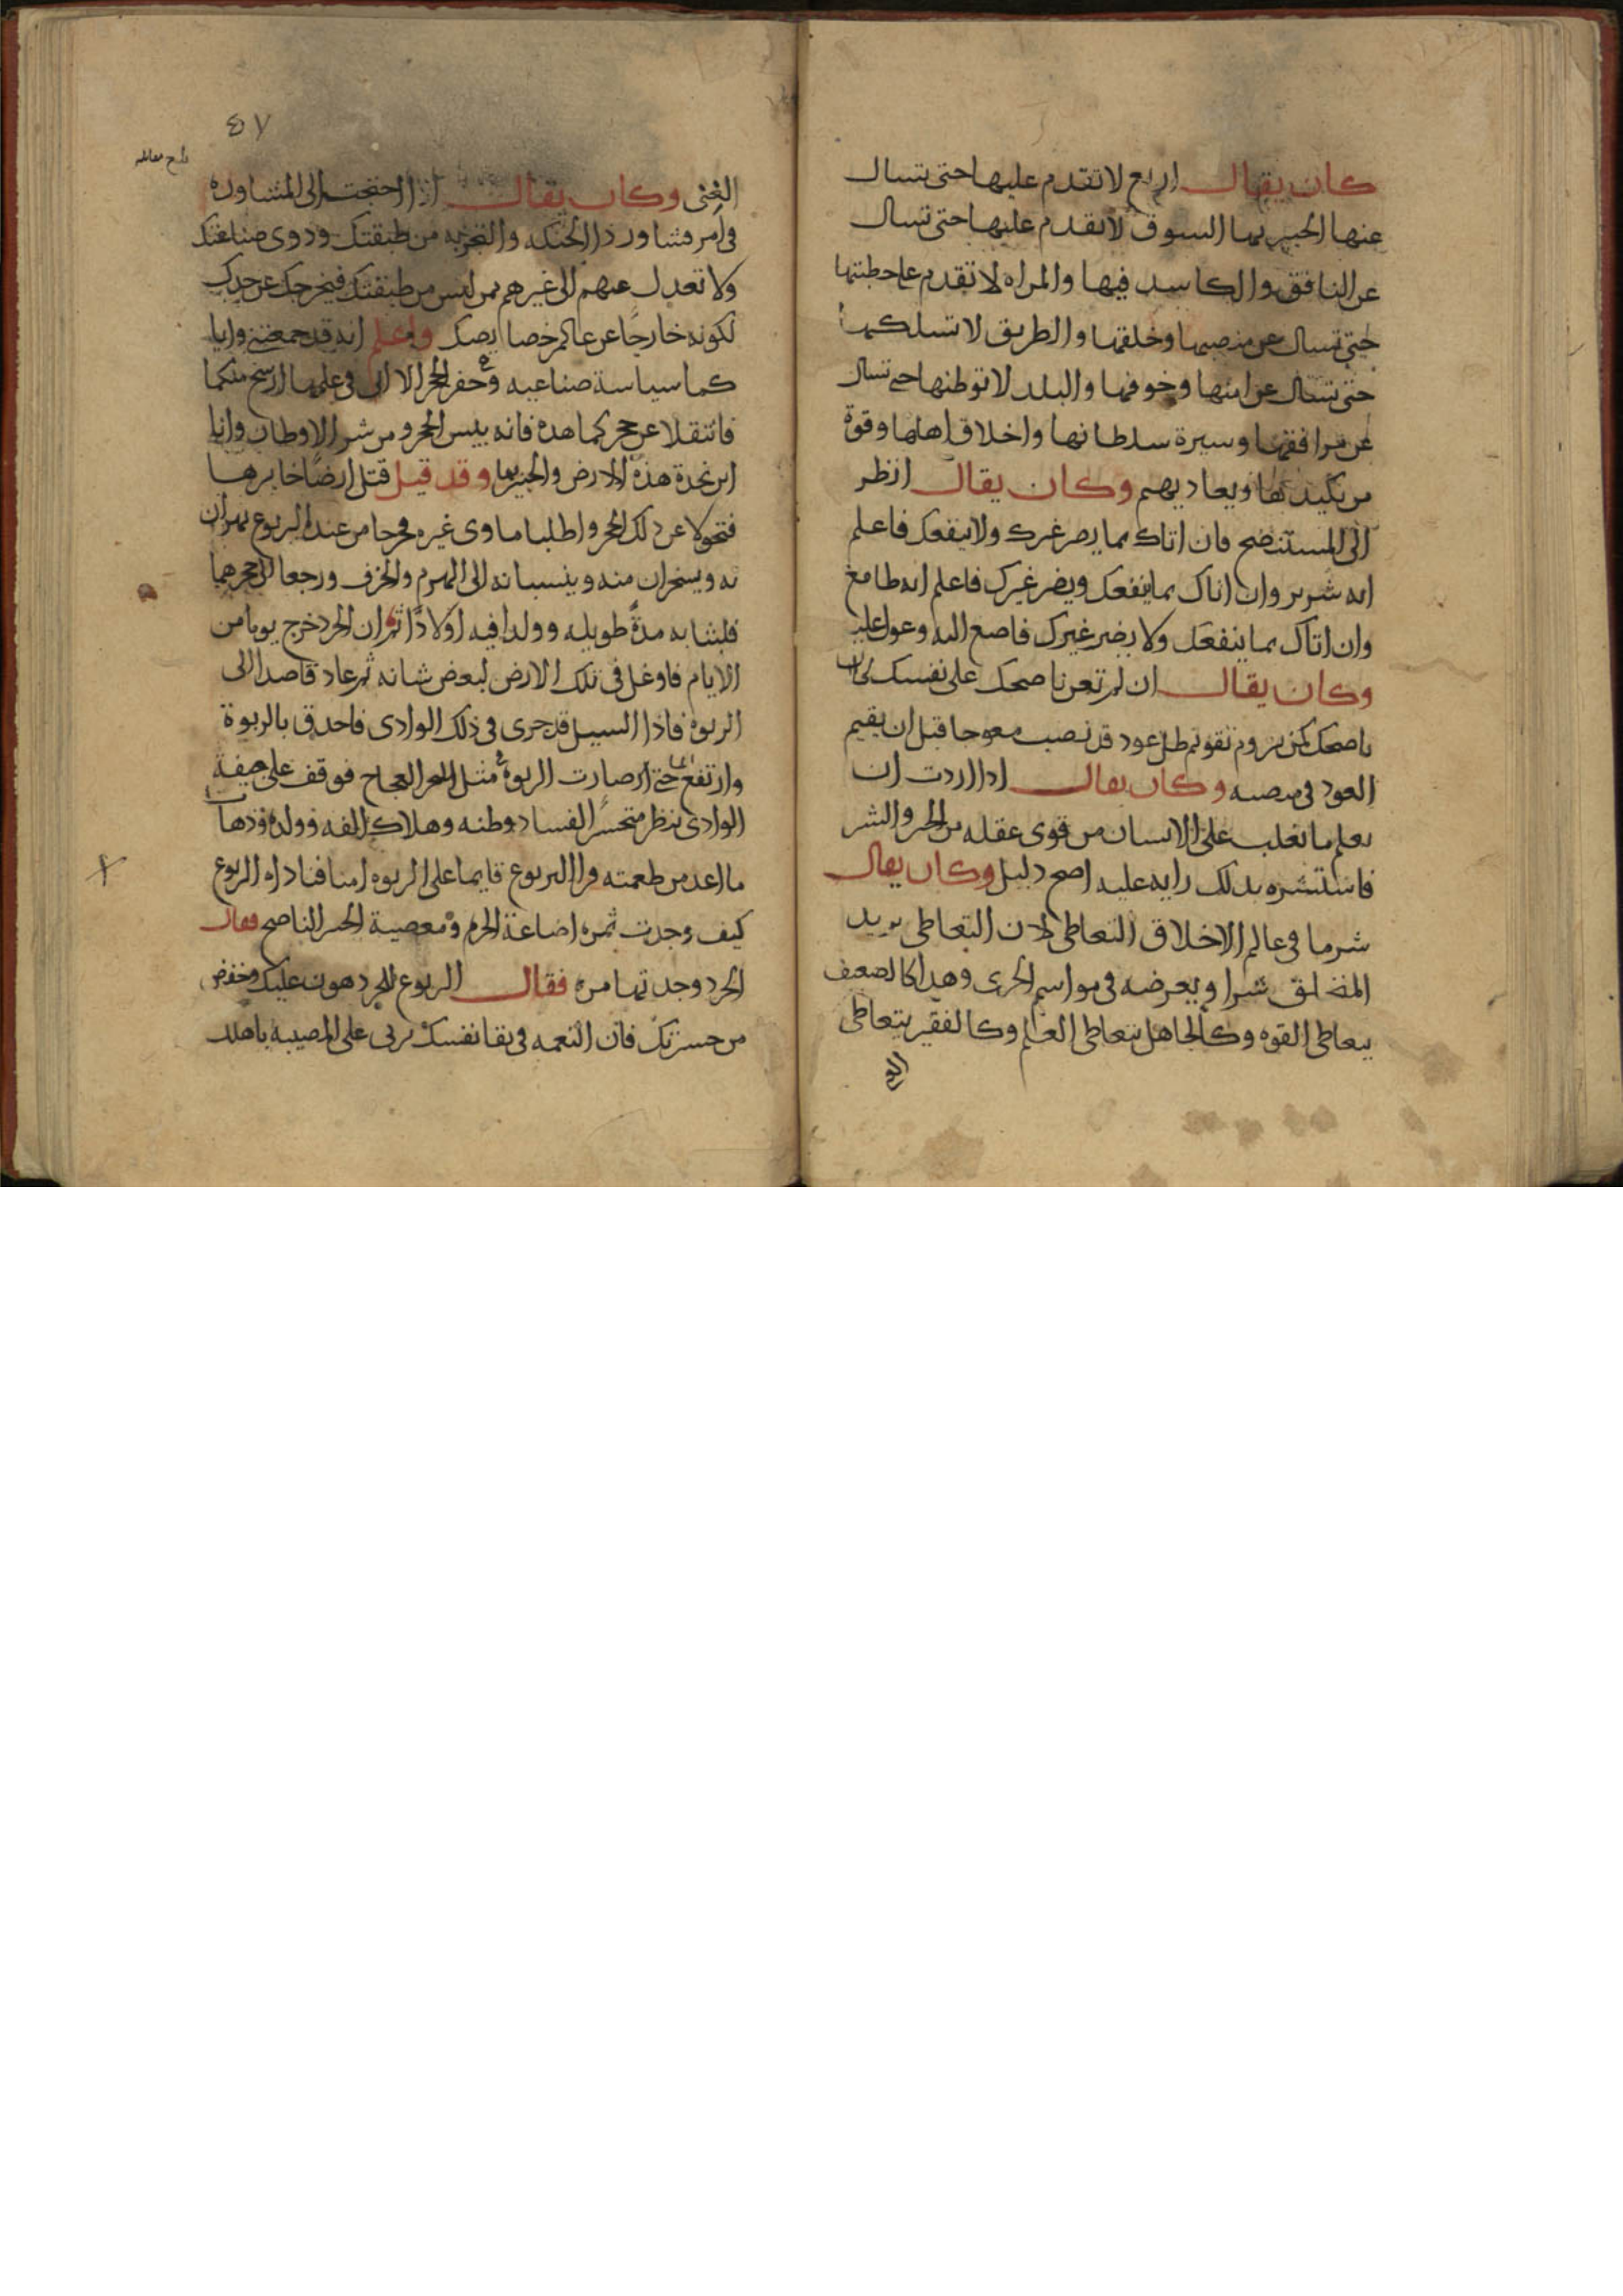 كان يقال اربع لا تقدم عليها حتى تسال
عنها الخبير بها السوق لا تقدم عليها حتى تسال
عن النافق والكاسد فيها والمراه لا تقدم على خطبتها
حتى تسال عن منصبها وخلقها والطريق لا تسلكها
حتى تسال عن امنها وخوفها والبلد لا توطنها حتى تسال
عن مرافقها وسيرة سلطانها واخلاق اهلها وقوة
من يكيد بها ويعاديهم وكان يقال انظر
الى المستنصح فان اتاك بما يضر غيرك ولا ينفعك فاعلم
انه شرير وان اتاك بما ينفعك ويضر غيرك فاعلم انه طامع
وان اتاك بما ينفعك ولا يضر غيرك فاصغ اليه وعول عليه
وكان يقال ان لم تعن ناصحك على نفسك كان
ناصحك كمن يروم تقويم ظل عود قد نصب معوجا قبل ان يقيم
العود في منصبه وكان يقال اذا اردت ان
تعلم ما تغلب على الانسان من قوى عقله من الخير والشر
فاستشره بذلك رايه عليه اصح دليل وكان يقال
شر ما في عالم الاخلاق التعاطي لان التعاطي يريد
المتخلق شرا ويعرضه في مواسم الخزى وهذا كالضعيف
يتعاطى القوه وكالجاهل يتعاطى العلم وكالفقير يتعاطى
٤٧
الغنى وكان يقال اذا احتجت الى المشاورة
في امر فشاور ذا الحنكه والتجربه من طبقتك وذوي صناعتك
ولا تعدل عنهم الى غيرهم ممن ليس من طبقتك فيخرجك عن حدك
لكونه خارجا عن عالمك واعلم انه قد جمعتني وايا
كما سياسة صناعيه وحفر الحجر الا اني في علمها ارسخ منكما
فانتقلا عن جحركما هذه فانه بيس الجحر ومن شر الاوطان وانا
ابن نجدة هذه الارض والخبير بها وقد قيل قتل ارضا خابرها
فتحولا عن ذلك الجحر واطلبا ماوى غيره فخرجا من عند اليربوع يهزان
به ويسخران منه وينسبانه الى الهرم والخرف ورجعا الى جحرهما
فلبثا به مدة طويله وولدا فيه اولادا ثم ان الجرذ خرج يوما من
الايام فاوغل في تلك الارض لبعض شانه ثم عاد قاصدا الى
الربوه فاذا السيل قد جرى في ذلك الوادى فاحدق بالربوة
وارتفع الما حتى صارت الربوة مثل البحر العجاج فوقف على حيفة
الوادى ينظر متحسرا لفساد وطنه وهلاك الفه وولده وذهاب
ما اعد من طعمته وراى اليربوع قايما على الربوه امنا فناداه اليربوع
كيف وجدت ثمره اضاعة الحزم ومعصية الخبير الناصح فقال
الجرذ وجدتها مره فقال اليربوع للجرذ هون عليك وخفض
من حسرتك فان النعمه في بقا نفسك تربى على المصيبه باهلك